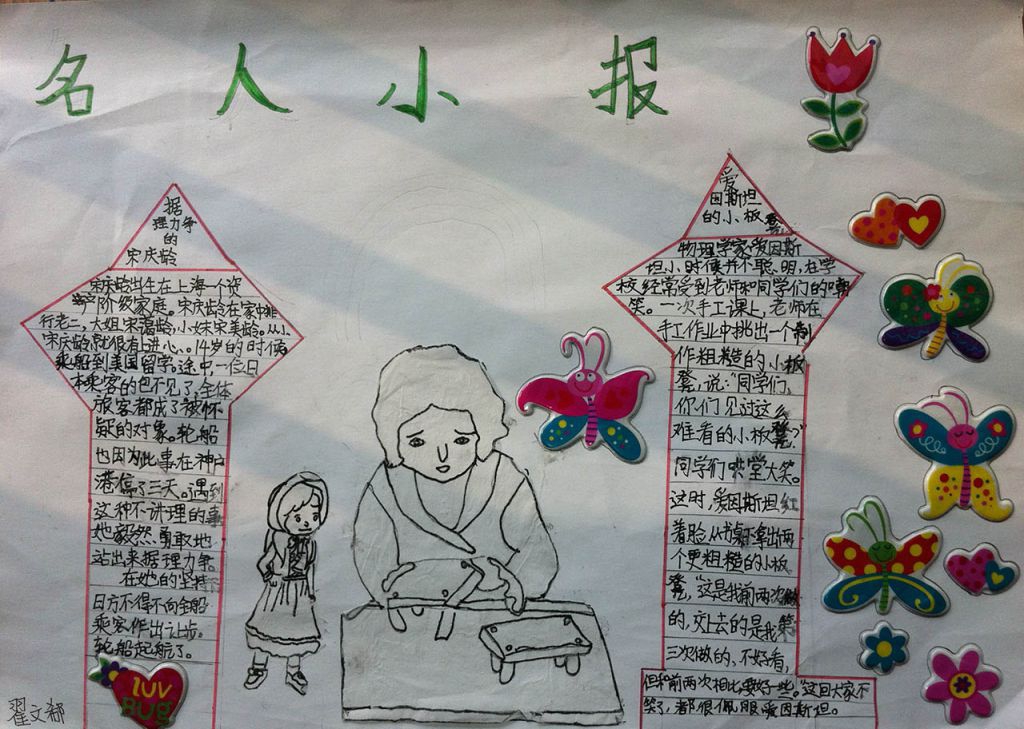 名人小报
据
理力争
的
宋庆龄
宋庆龄出生在上海一个资
产阶级家庭。宋庆龄在家中排
行老二,大姐宋霭龄,小妹宋美龄。从小
宋庆龄就很有上进心。14岁的时候
乘船到美国留学。途中一位日
本乘客的包不见了,全体
旅客都成了被怀
疑的对象。轮船
也因为此事在神户
港停了三天。遇到
这种不讲理的事
她毅然勇敢地
站出来据理力争。
在她的坚持下
日方不得不向全船
乘客作出让步。
轮船起航了。
LUV
BUG
翟文郗
爱
因斯坦
的小板凳
物理学家爱因斯
坦小时候并不聪明,在学
校经常受到老师和同学们的嘲
笑。一次手工课上,老师在
手工作业中挑出一个制
作粗糙的小板
凳,说:“同学们,
你们见过这么
难看的小板凳?”
同学们哄堂大笑。
这时,爱因斯坦红
着脸从书桌下拿出两
个更粗糙的小板
凳,“这是我前两次做
的,交上去的是我第
三次做的,不好看,
但和前两次相比要好一些。”这回大家不
笑了,都很佩服爱因斯坦。